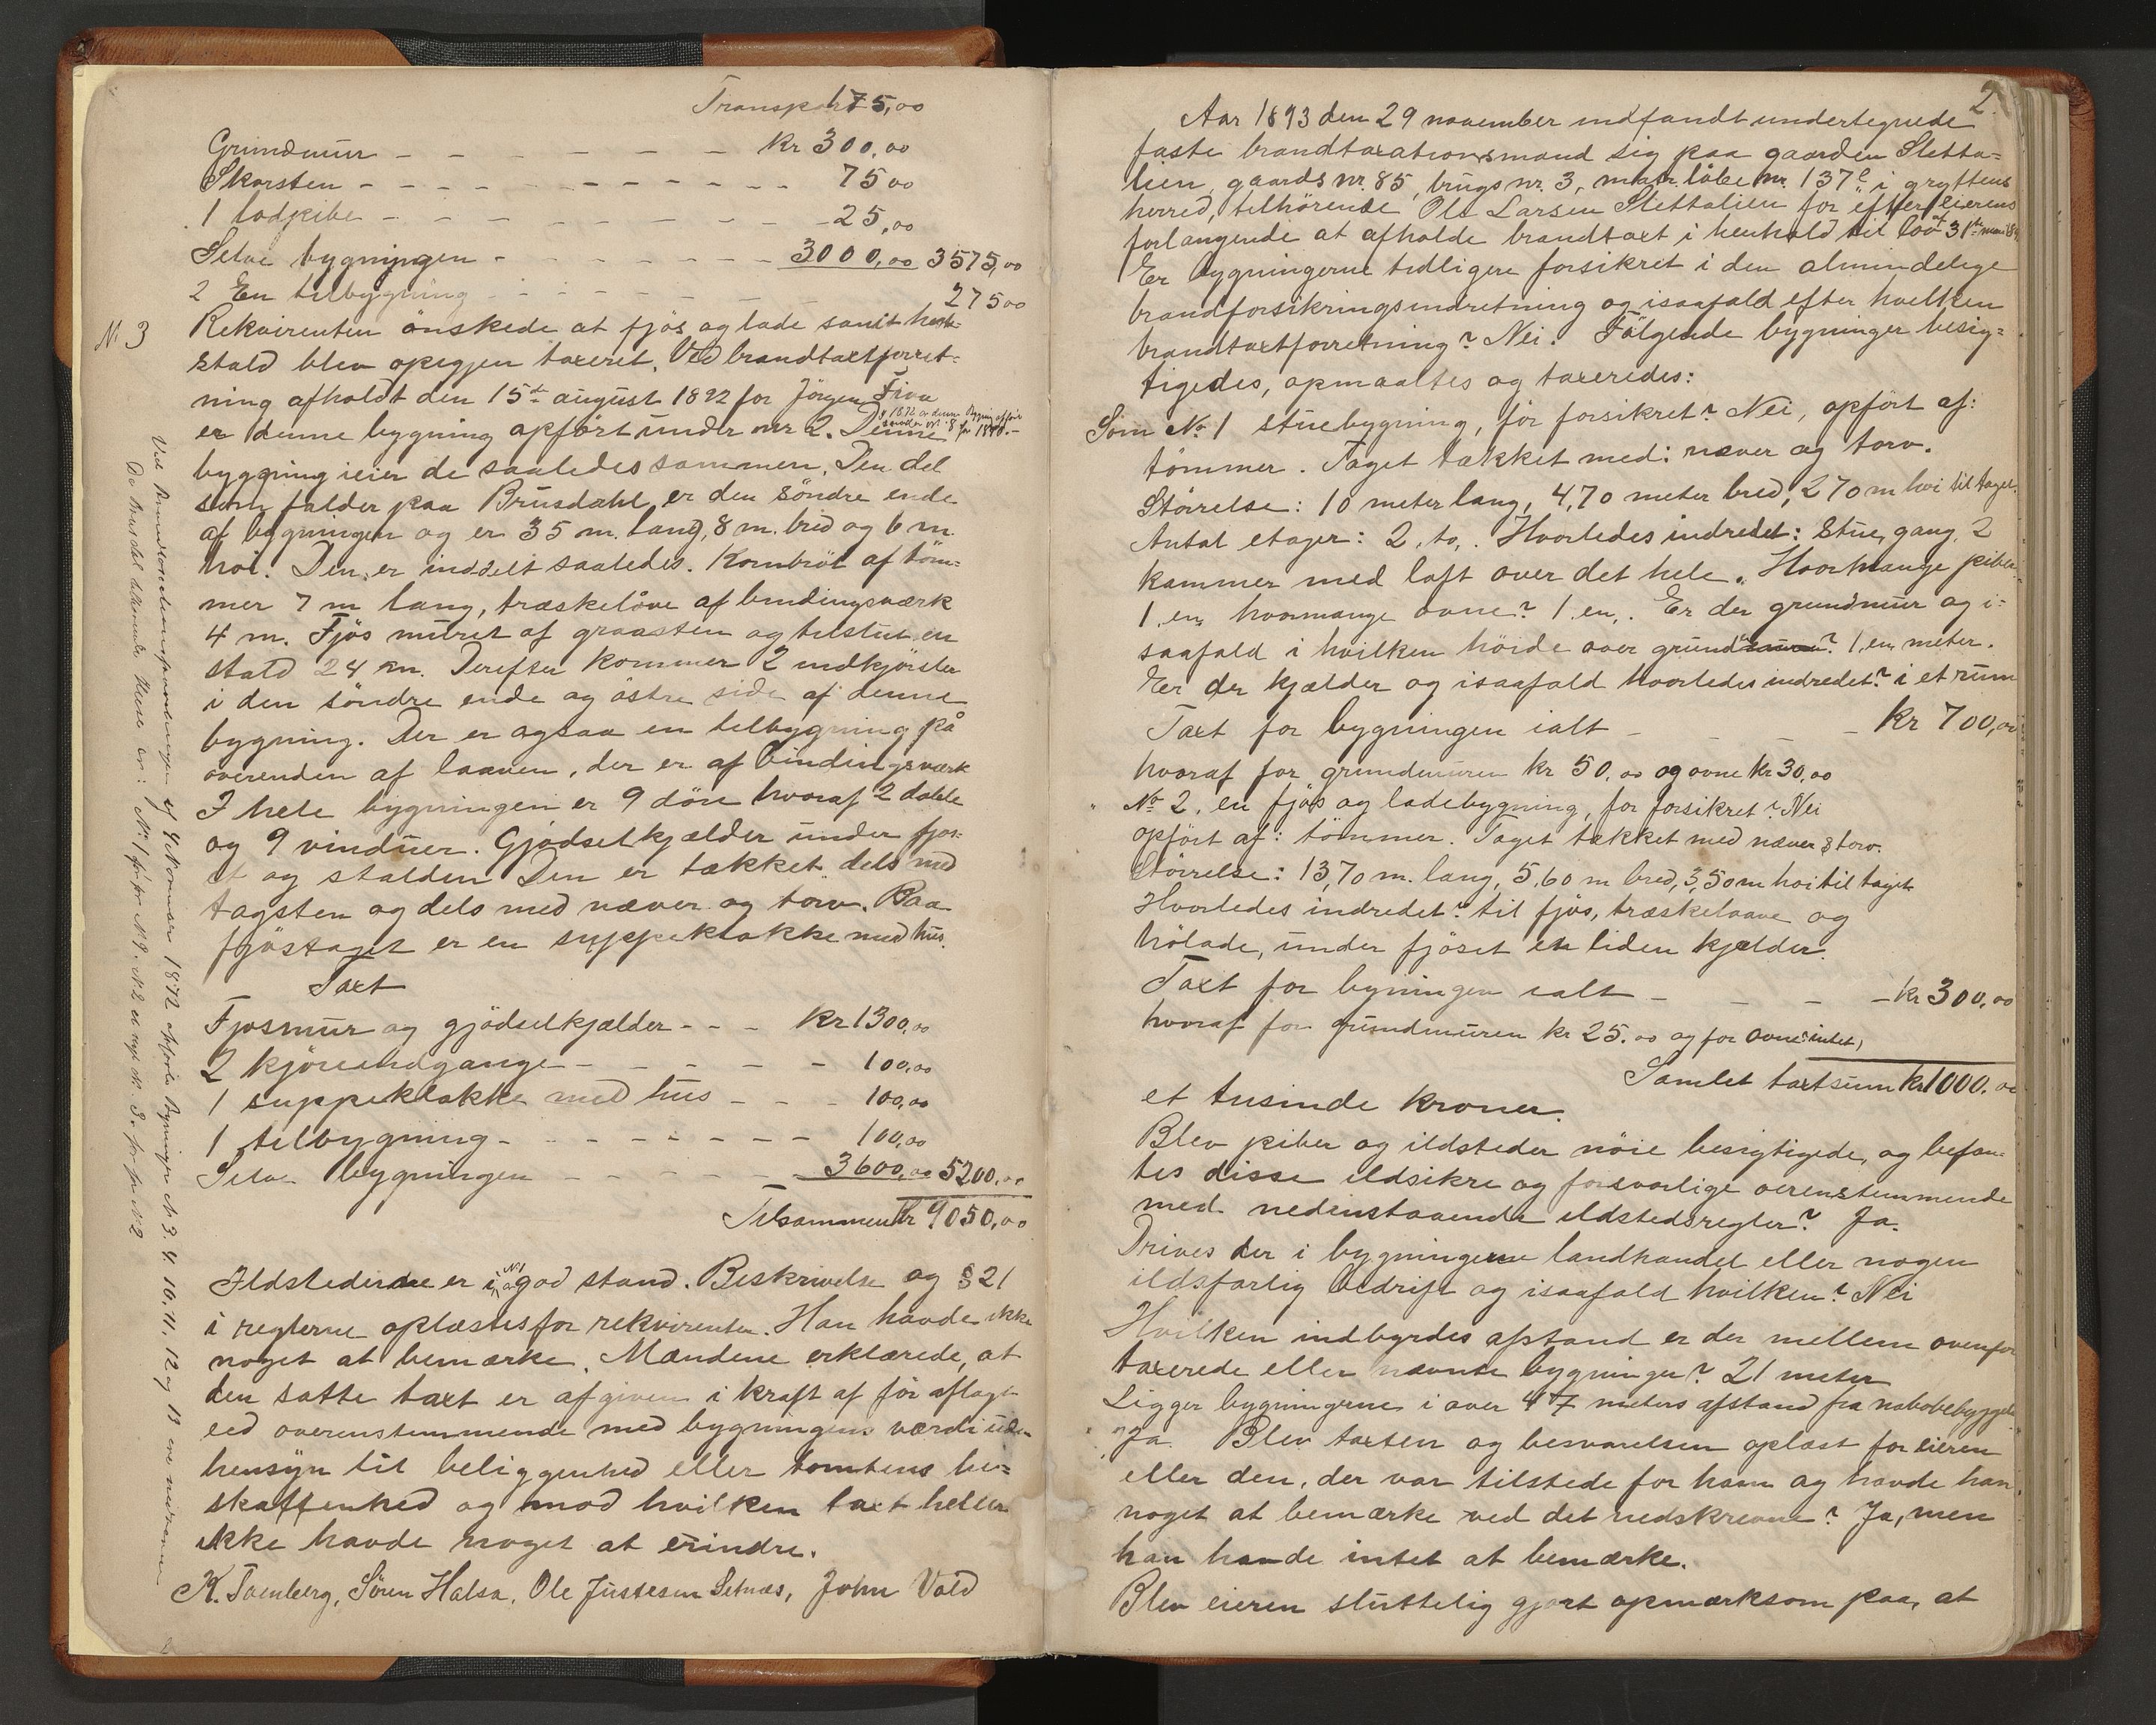 Transport 175,00
Grundmur - - - - - - - kr 300,00
Skorsten - - - - - - - - - 75 00
1 lodpibe - - - - - - - - 25,00
Selve bygningen - - - - - - - 3000,00 3575,00
2 En tilbygning - - - - - - - 275 00
No 3 Rekvirenten önskede at fjös og lade samt heste-
stald blev opigjen taxeret. Ved brandtaxtforret-
ning afholdt den 15de august 1892 for Jörgen Fiva
er denne bygning opfört under nr 2. Denne
bygning ieier de saaledes sammen. Den del
som falder paa Brusdahl er den söndre ende
af bygningen og er 35 m. lang, 8 m. bred og 6 m.
höi. Den er inddelt saaledes. Kornbröt af töm-
mer 7 m lang, træskelöve af bindingsværk
4 m. Fjös muret af graasten og tilstut en
stald 24 m. Derefter kommer 2 indkjörsler
i den söndre ende og östre side af denne
bygning. Der er ogsaa en tilbygning på
overenden af laaven, der er af bindingsværk
I hele bygningen er 9 döre hvoraf 2 doble
og 9 vinduer. Gjödselkjælder under fjös-
et og stalden Den er tækket dels med
tagsten og dels med næver og torv. Paa
fjöstaget er en suppeklokke med hus.
Taxt
Fjosmur og gjödselkjælder - - - kr 1300,00
2 kjöreindgange - - - - - 100,00
1 suppeklokke med hus - - - 100,00
1 tilbygning - - - - - - - - 100,00
Selve bygningen - - - - - 3600,00 5200,00
Tilsammen kr 9050,00
Ildstederne er i god stand. Beskrivelse og § 21
i reglerne oplæstes for rekvirenten. Han havde ikke
noget at bemærke. Mændene erklærede, at
den satte taxt er afgiven i kraft af för aflagt
eed overenstemmende med bygningens værdi uden
hensyn til beliggenhed eller tomtens be-
skaffenhed og mod hvilken taxt heller
ikke havde noget at erindre.
K. Tvenberg, Sören Halsa, Ole Justesen Setnæs, John Vold
Ved Brandtaxtionsforretningen af 4 1872 opförte Bygninger No 3. 4. 10, 11, 12 og 13 ere nedrevne
De Brusdal tilhörende Huse er: No 1 för No 9. No 2 er nyt No 3. för No 2
2.
Aar 1893 den 29 november indfandt undertegnede
faste brandtaxationsmænd sig paa gaarden Sletta-
lien, gaards nr. 85, brugs nr. 3, matr. löbe nr. 137c i gryttens
herred, tilhörende Ole Larsen Slettalien for efter eierens
forlangende at afholde brandtaxt i henhold til lov af 31te
Er bygningerne tidligere forsikret i den almindelige
brandforsikringsindretning og isaafald efter hvilken
brandtaxtforretning? Nei. Fölgende bygninger besig-
tigedes, opmaaltes og taxeredes:
Som No 1 stuebygning, för forsikret? Nei, opfört af:
tömmer. Taget tækket med: næver og torv.
Störrelse: 10 meter lang, 4,70 meter bred, 2 70 m höi til taget.
Antal etager: 2, to,. Hvorledes indredet: Stue, gang, 2
kammer med loft over det hele. Hvormange piber
1, en, hvormange ovne? 1, en,. Er der grundmur og i-
saafald i hvilken höide over grund? 1, en, meter.
Er der kjælder og isaafald hvorledes indredet? i et rum
Taxt for bygningen ialt - - - - kr 700,00
hvoraf for grundmuren kr 50,00 og ovne kr 30,00
No 2, en fjös og ladebygning, för forsikret? Nei
opfört af: tömmer. Taget tækket med næver & torv.
Störrelse: 13,70 m. lang, 5,60 m bred, 3,50 m höi til taget
Hvorledes indredet? til fjös, træskelaave og
hölade, under fjöset en liden kjælder.
Taxt for bygningen ialt - - - - kr 300,00
hvoraf for grundmuren kr 25.00 og for ovne intet,
Samlet taxtsum kr 1000.00
et tusinde kroner.
Blev piber og ildsteder nöie besigtigede, og befan-
tes disse ildsikre og forsvarlige overenstemmende
med nedenstaaende ildstedsregler? Ja.
Drives der i bygningerne landhandel eller nogen
ildsfarlig bedrift og isaafald hvilken? Nei
Hvilken indbyrdes afstand er der mellem ovenfor
taxerede eller nævnte bygninger? 21 meter
Ligger bygningerne i over 47 meters afstand fra nabobebyggelse
Ja. Blev taxten og besvarelsen oplæst for eieren
eller den, der var tilstede for ham og havde han
noget at bemærke ved det nedskrevne? Ja, men
han havde intet at bemærke.
Blev eieren sluttelig gjort opmærksom paa, at